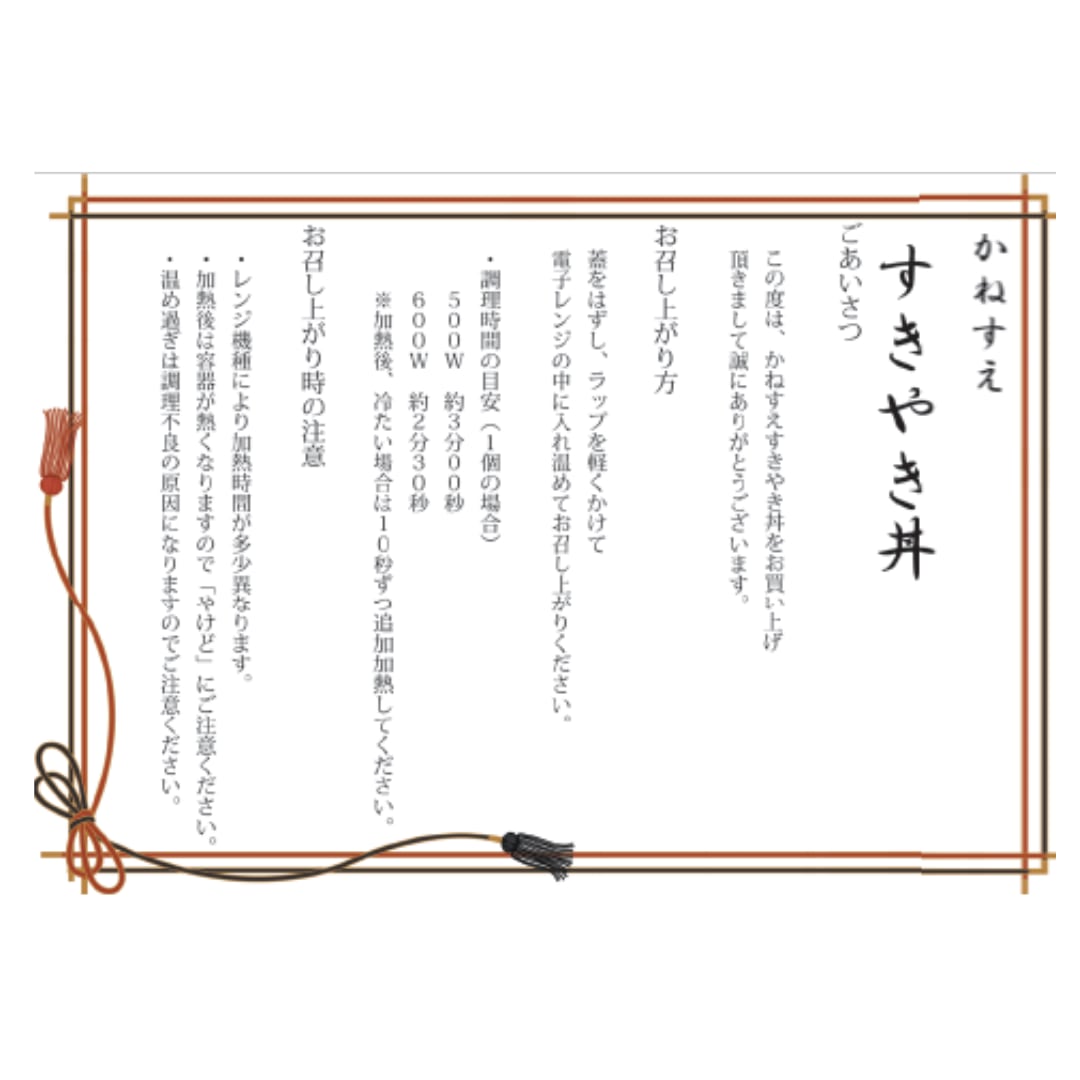 かねすえ
すきやき丼
ごあいさつ
この度は、かねすえすきやき丼をお買い上げ
頂きまして誠にありがとうございます。
お召し上がり方
蓋をはずし、ラップを軽くかけて
電子レンジの中に入れ温めてお召し上がりください。
・調理時間の目安（１個の場合）
５００Ｗ　約３分００秒
６００Ｗ　約２分３０秒
※加熱後、冷たい場合は１０秒ずつ追加加熱してください。
お召し上がり時の注意
・レンジ機種により加熱時間が多少異なります。
・加熱後は容器が熱くなりますので「やけど」にご注意ください。
・温め過ぎは調理不良の原因になりますのでご注意ください。